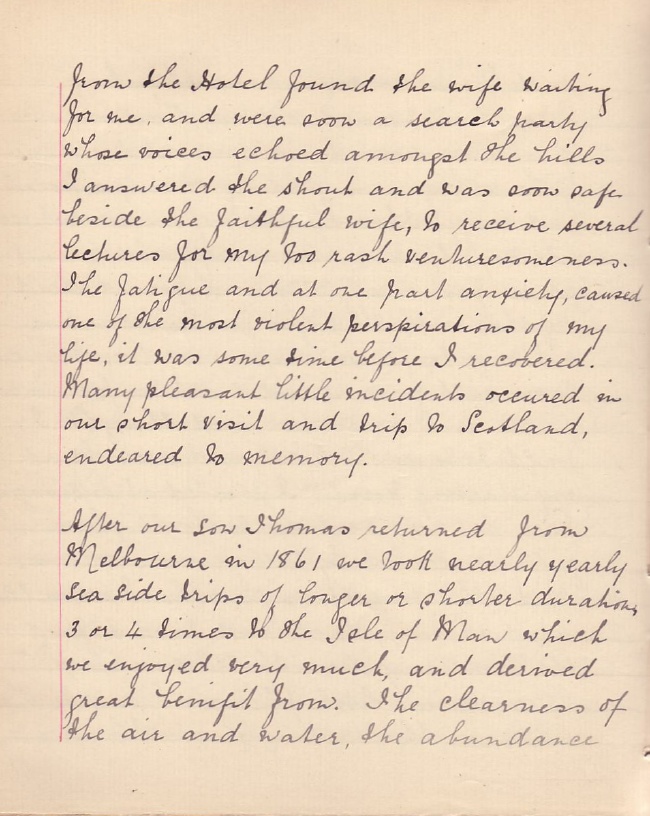 from the Hotel found the wife waiting
for me, and were soon a search party
whose voices echoed amongst the hills
I answered the shout and was soon safe
beside the faithful wife, to receive several
lectures for my too rash venturesomeness.
The fatigue and at one part anxiety, caused
one of the most violent perspirations of my
life, it was some time before I recovered.
Many pleasant little incidents occured in
our short visit and trip to Scotland,
endeared to memory.
After our son Thomas returned from
Melbourne in 1861 we took nearly yearly
sea side trips of longer or shorter duration,
3 or 4 times to the Isle of Man which
we enjoyed very much, and derived
great benifit from. The clearness of
the air and water, the abundance